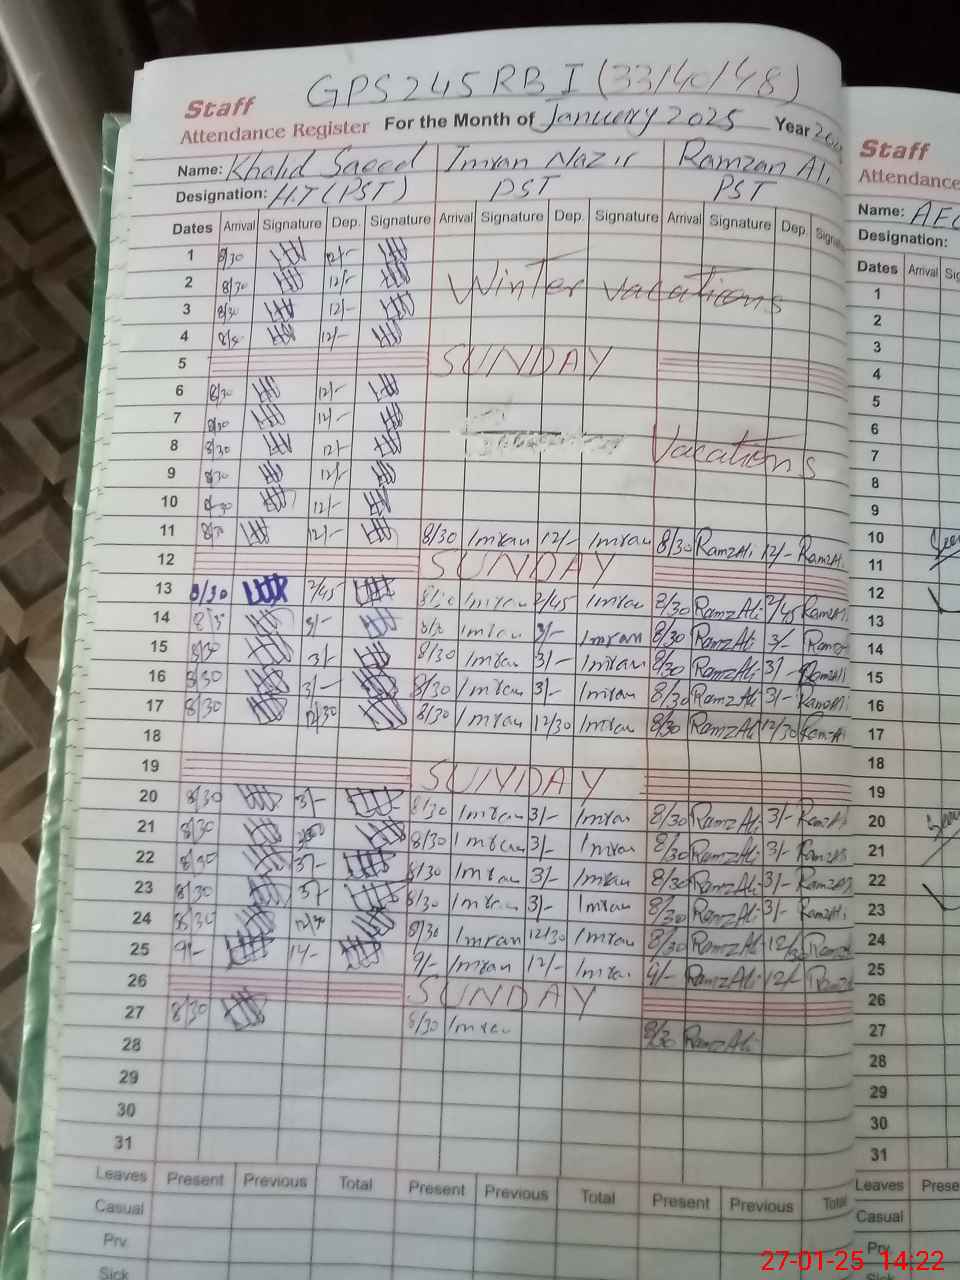 GPS 245 RB I (33/40/48)
Staff
Attendance Register For the Month of January 2025 Year
Name: Khalid Saeed Imran Nazir Ramzan Ali
Designation: H.T (PST) PST PST
Dates Arrival Signature Dep. Signature Arrival Signature Dep. Signature Arrival Signature Dep. Signature
1 8/30 12/-
2 8/30 12/- Winter vacations
3 8/30 12/-
4 12/-
5 SUNDAY
6 8/30 12/-
7 8/30 12/-
8 8/30 12/- Vacations
9 8/30 12/-
10 8/30 12/-
11 8/30 12/- 8/30 Imran 12/- Imran 8/30 RamzAli 12/- RamzAli
12 SUNDAY
13 8/30 2/45 Imran 2/45 Imran 8/30 RamzAli 2/45 RamzAli
14 3/- Imran 3/- Imran 8/30 RamzAli 3/-
15 8/30 3/- 8/30 Imran 3/- Imran 8/30 RamzAli 3/- RamzAli
16 8/30 3/- 8/30 Imran 3/- Imran 8/30 RamzAli 3/- RamzAli
17 8/30 12/30 8/30 Imran 12/30 Imran 8/30 RamzAli 12/30 RamzAli
18
19 SUNDAY
20 8/30 3/- 8/30 Imran 3/- Imran 8/30 RamzAli 3/- RamzAli
21 8/30 8/30 Imran 3/- Imran 8/30 RamzAli 3/- RamzAli
22 8/30 3/- 8/30 Imran 3/- Imran 8/30 RamzAli 3/- RamzAli
23 8/30 3/- 8/30 Imran 3/- Imran 8/30 RamzAli 3/- RamzAli
24 8/30 12/30 8/30 Imran 12/30 Imran 8/30 RamzAli 12/30
25 9/- 9/- Imran 12/- Imran 9/- RamzAli 12/-
26 SUNDAY
27 8/30 8/30 Imran 8/30 RamzAli
28
29
30
31
Leaves Present Previous Total Present Previous Total Present Previous Total
Casual
Prv.
Sick
Staff
Attendance
Name:
Designation:
Dates Arrival
1
2
3
4
5
6
7
8
9
10
11
12
13
14
15
16
17
18
19
20
21
22
23
24
25
26
27
28
29
30
31
Leaves
Casual
Prv.
27-01-25 14:22